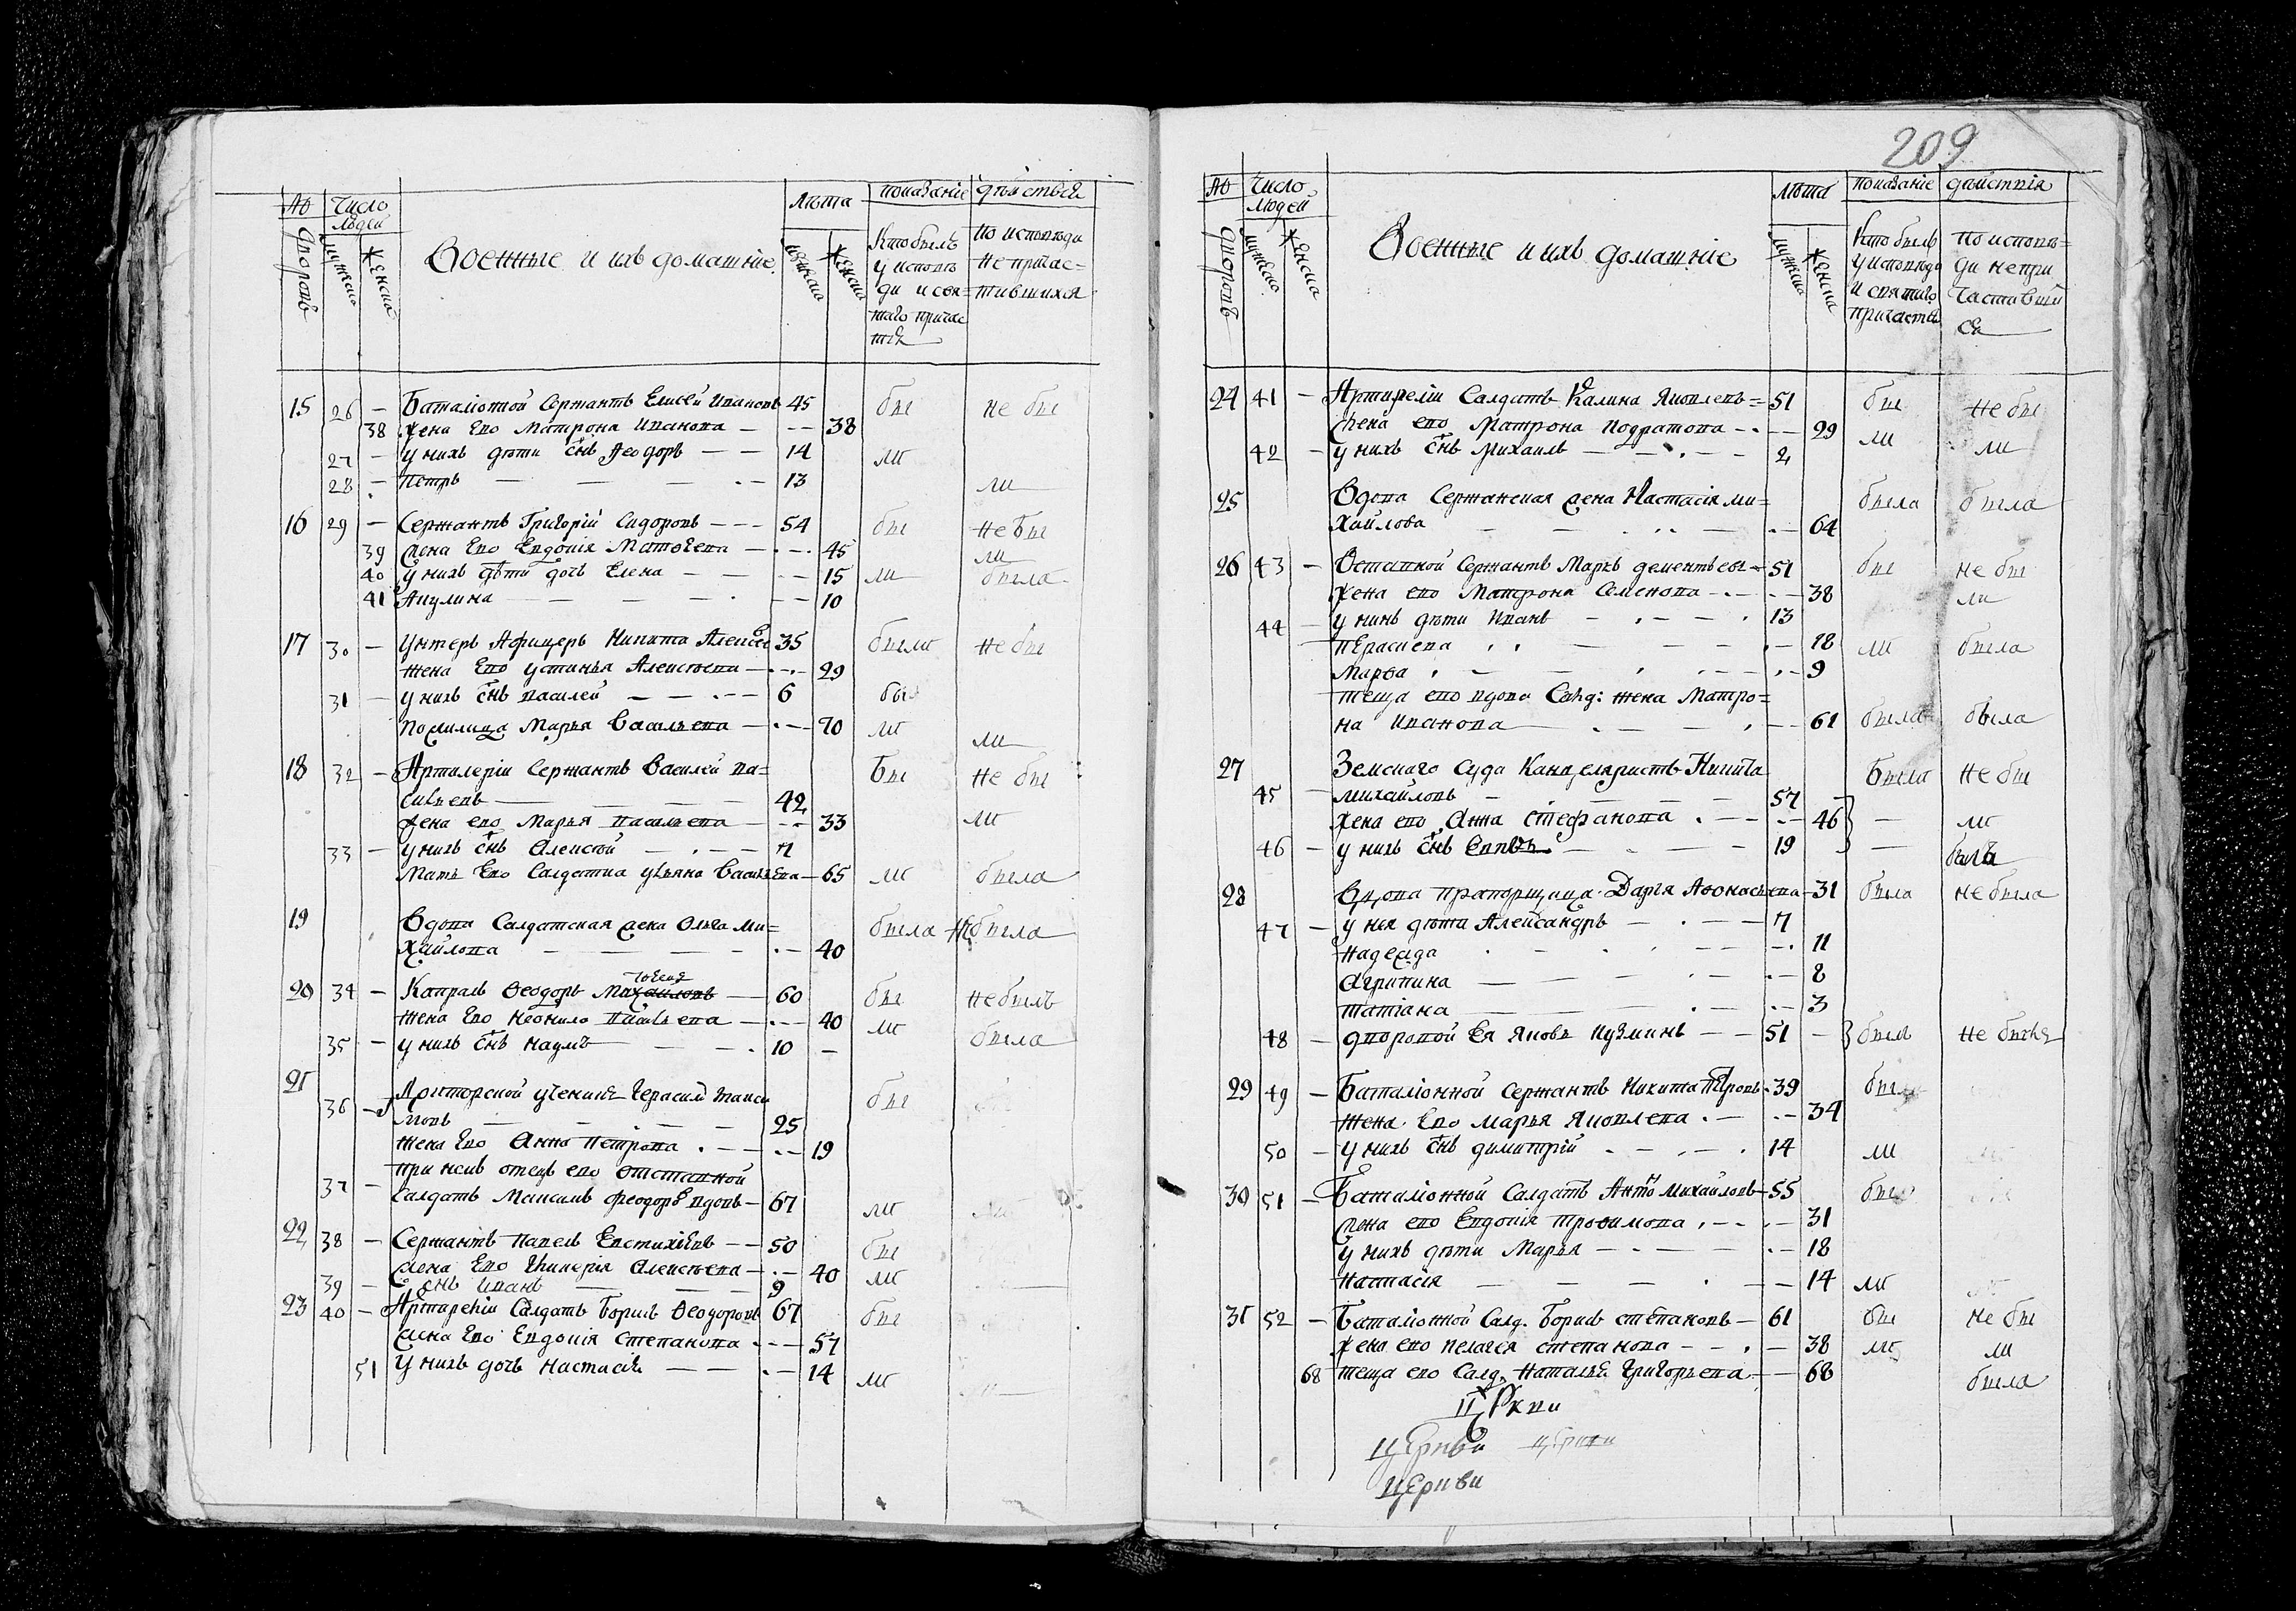 Число людей
Военные и ихъ домашніе
Лѣта
показаніе дѣйствія
мужеска
женска
Кто былъ у исповѣди и святаго причастія
по исповѣди не причастившихся
15 26 — Баталіоной Сержантъ Елисей Ивановъ 45 бы не бы
38 жена Ево Матрона Иванова — — 38
27 — у нихъ дѣти снъ Ѳеодоръ — — 14 ли
28 — Петръ — — — 13 ли
16 29 — Сержантъ Григорій Сидоровъ — — — 54 бы не бы
39 жена Ево Евдокія Матвѣева — 45 ли
40 у нихъ дѣти дочь Елена — — 15 ли была
41 Акулина — — — 10
17 30 — Унтеръ Афицеръ Никита Алексѣе 35 были не бы
жена Ево Устинья Алексѣева — 29
31 — у нихъ снъ Василей — — 6 бы
Марья Васильева — 70 ли ли
18 32 — Артилеріи Сержантъ Василей Ва=
сильевъ — — — 42 бы не бы
жена ево Марья Васильева — 33 ли
33 — у нихъ снъ Алексѣй — 7
Мать Ево Салдатка Ульяна Васильева — 65 ли была
19 Вдова Салдатская жена Ольга Ми=
хайлова — — — 40 была не была
20 34 — Капралъ Ѳеодоръ Михайловъ — 60 бы не былъ
жена Ево Неонила Васильева — 40 ли
35 — у нихъ снъ Наумъ — 10 — была
21 36 — ученикъ Герасимъ Макси
мовъ — — — 25 бы
жена Ево Анна Петрова — 19
при немъ отецъ ево отставной
37 — Салдатъ Максимъ Ѳеодоровъ вдовъ — 67 ли
22 38 — Сержантъ Павелъ Евстихіевъ — — 50 бы
жена Ево Гликерія Алексѣева — 40 ли
39 — снъ Иванъ — 9
23 40 — Артилеріи Салдатъ Борисъ Ѳеодоровъ 67 бы
жена Ево Евдокія Степанова — 57
51 у нихъ дочь Настасія — — 14 ли
209
Число людей
Военные и ихъ домашніе
Лѣта
показаніе дѣйствія
мужеска
женска
Кто былъ у исповѣди и святаго причастія
по исповѣди не причастившися
24 41 — Артилеріи Салдатъ Калина Яковлевъ = 51 бы не бы
жена ево Матрона Кодратова — 29 ли
42 — у нихъ снъ Михаилъ — 2 ли
25 Вдова Сержанская жена Настасія Ми=
хайлова — 64 была была
26 43 — Оставной Сержантъ Маркъ Дементьевъ — 51 бы не бы
жена ево Матрона Семенова — 38 ли
44 — у нихъ дѣти Иванъ — 13
Параскева — 18 ли была
Марѳа — 9
теща ево вдова Салд: жена Матро=
на Иванова — 61 была была
27 Земскаго суда Канцеляристъ Никита
45 — Михайловъ — 57 была не бы
жена ево Анна Стефанова — 46 — ли
46 — у нихъ снъ — 19 —
28 Вдова прапорщица Дарья Аѳонасьева — 31 была не была
47 — у нея дѣти Александръ — 7
Надежда — 11
Агрипина — 8
Татіана — 3
48 — дворовой Ея Яковъ Кузминъ — — 51 — былъ
29 49 — Баталіонной Сержантъ Никита Петровъ 39 бы
жена Ево Марья Яковлева — 34
50 — у нихъ снъ Димитрій — 14 ли
30 51 — Баталіонной Салдатъ Антонъ Михайловъ — 55 бы
жена ево Евдокія Трофимова — 31
у нихъ дѣти Марья — 18
Настасія — 14 ли
31 52 — Баталіонной Салд. Борисъ Степановъ — 61 бы не бы
жена ево Пелагея Степанова — 38 ли ли
68 теща ево Салд. Наталья Григорьева — 68 была
Церкви
Церкви церкви
Церкви